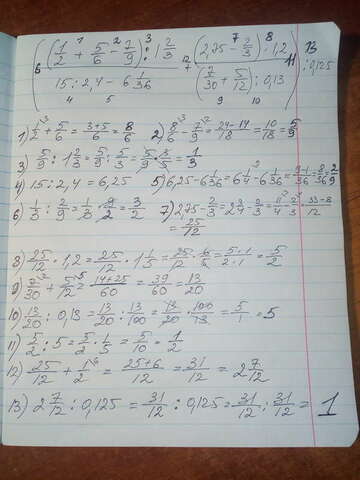 ((1/2 + 5/6 - 7/9) : 1 2/3 (2,75 - 2/3) · 1,2
15 : 2,4 - 6 1/36 (7/30 + 5/12) : 0,13) : 0,125
1) 1/2 + 5/6 = 3+5/6 = 8/6 2) 8/6 - 7/9 = 24-14/18 = 10/18 = 5/9
3) 5/9 : 1 2/3 = 5/9 : 5/3 = 5·3/9·5 = 1/3
4) 15 : 2,4 = 6,25 5) 6,25 - 6 1/36 = 6 1/4 - 6 1/36 = 9-1/36 = 8/36 = 2/9
6) 1/3 : 2/9 = 1/3 · 9/2 = 3/2 7) 2,75 - 2/3 = 2 3/4 - 2/3 = 11/4 - 2/3 = 33-8/12
= 25/12
8) 25/12 · 1,2 = 25/12 · 1 1/5 = 25/12 · 6/5 = 5·1/2·1 = 5/2
9) 7/30 + 5/12 = 14+25/60 = 39/60 = 13/20
10) 13/20 : 0,13 = 13/20 : 13/100 = 13/20 · 100/13 = 5/1 = 5
11) 5/2 : 5 = 5/2 · 1/5 = 5/10 = 1/2
12) 25/12 + 1/2 = 25+6/12 = 31/12 = 2 7/12
13) 2 7/12 : 0,125 = 31/12 : 0,125 = 31/12 : 31/12 = 1